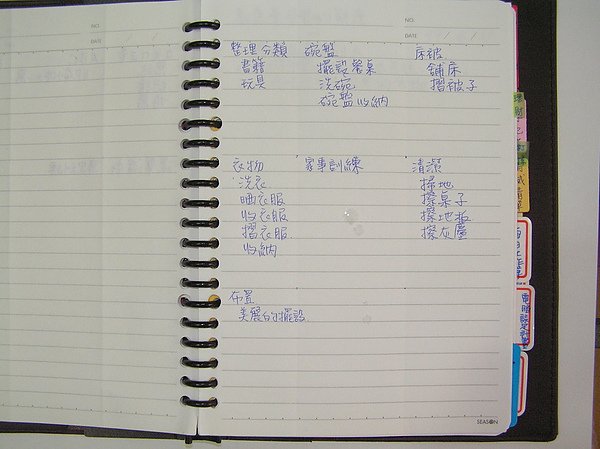 NO.
DATE
NO.
DATE
整理分類 碗盤 床被
書籍 擺設餐桌 舖床
玩具 洗碗 摺被子
碗盤收納
衣物 家事訓練 清潔
洗衣 掃地
晒衣服 擦桌子
收衣服 擦地板
摺衣服 擦灰塵
收納
布置
美麗的擺設
SEASON